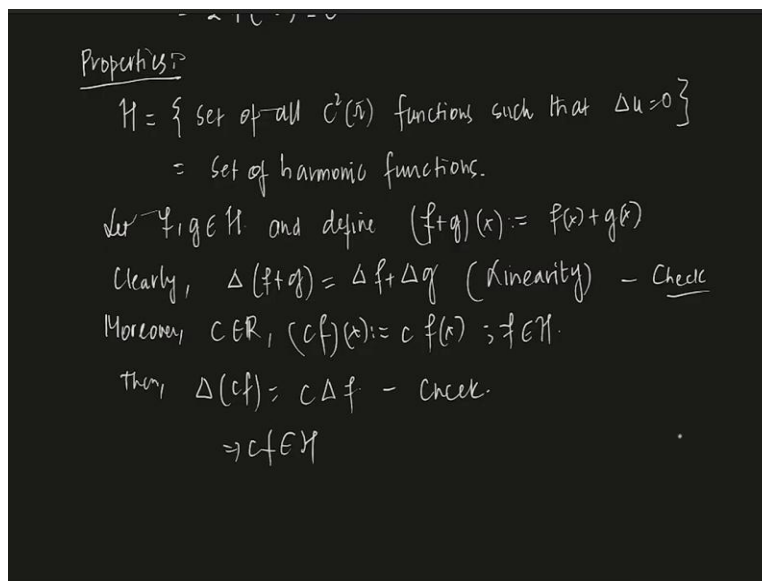 Properties:
H = { set of all C²(Ω) functions such that Δu=0 }
= set of harmonic functions.
Let f, g ∈ H and define (f+g)(x) := f(x)+g(x)
Clearly, Δ(f+g) = Δf+Δg (Linearity) – Check
Moreover, C∈R, (cf)(x) := c f(x) ; f∈H.
then, Δ(cf) = cΔf – Check.
⇒ cf∈H